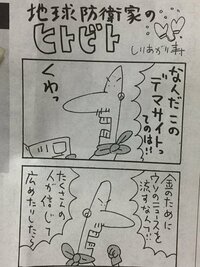 地球防衛家の
ヒトビト
しりあがり寿
なんだこの
デマサイトっ
てのは!!
くわっ
金のために
ウソのニュースを
流すなんて…
たくさんの
人が信じて
広めたりしたら